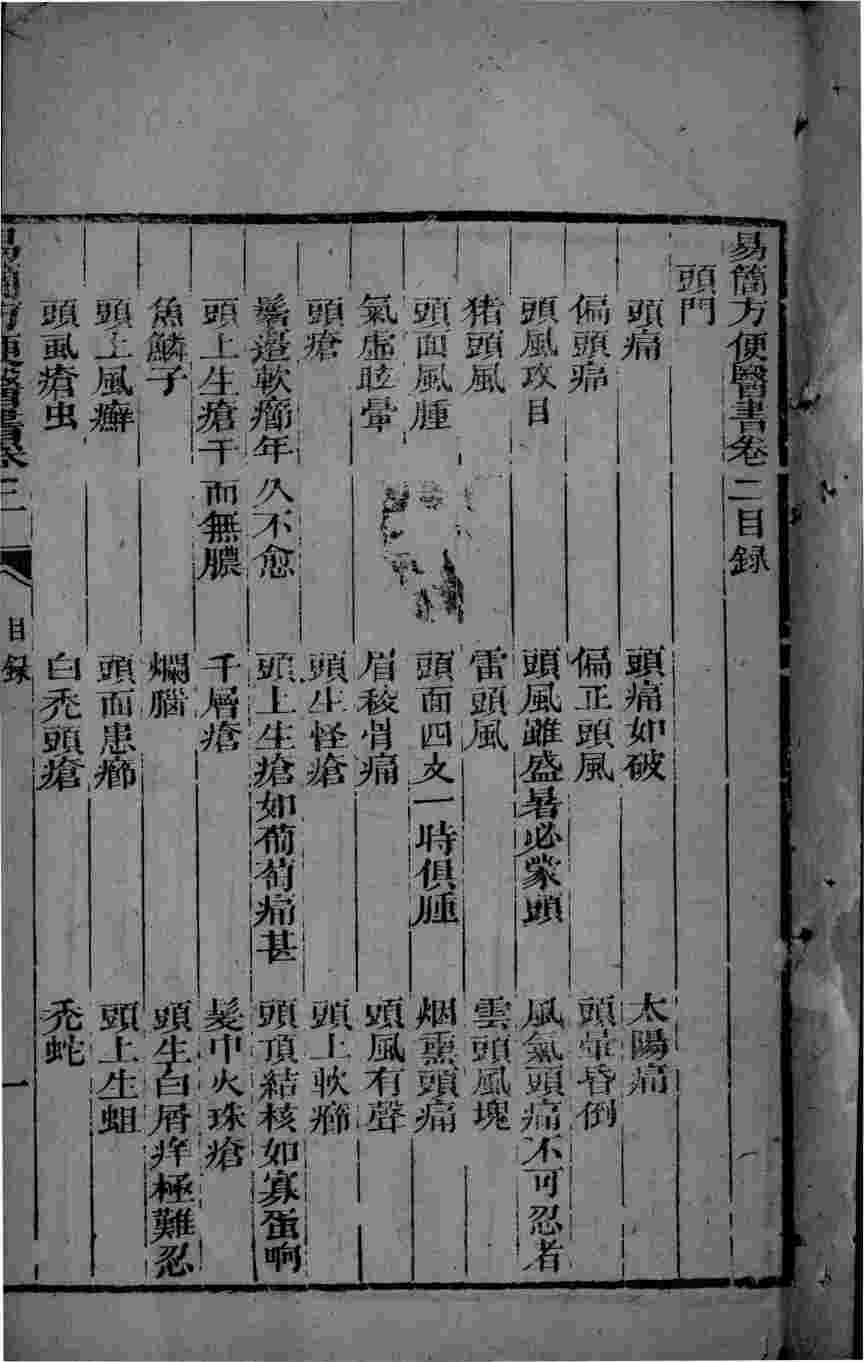 易簡方便醫書卷二目録
頭門
頭痛 頭痛如破 太陽痛
偏頭痛 偏正頭風 頭暈昏倒
頭風攻目 頭風雖盛暑必蒙頭 風氣頭痛不可忍者
猪頭風 雷頭風 雲頭風塊
頭面風腫 頭面四支一時俱腫 烟熏頭痛
氣虛眩暈 眉稜骨痛 頭風有聲
頭瘡 頭生怪瘡 頭上軟癤
鬂邉軟癤年久不愈 頭上生瘡如葡萄痛甚 頭頂結核如寡蛋响
頭上生瘡干而無膿 千層瘡 髮中火珠瘡
魚鱗子 爛腦 頭生白屑痒極難忍
頭上風癬 頭面患癤 頭上生蛆
頭虱瘡虫 白禿頭瘡 禿蛇
易簡方便醫書卷二 目録 一